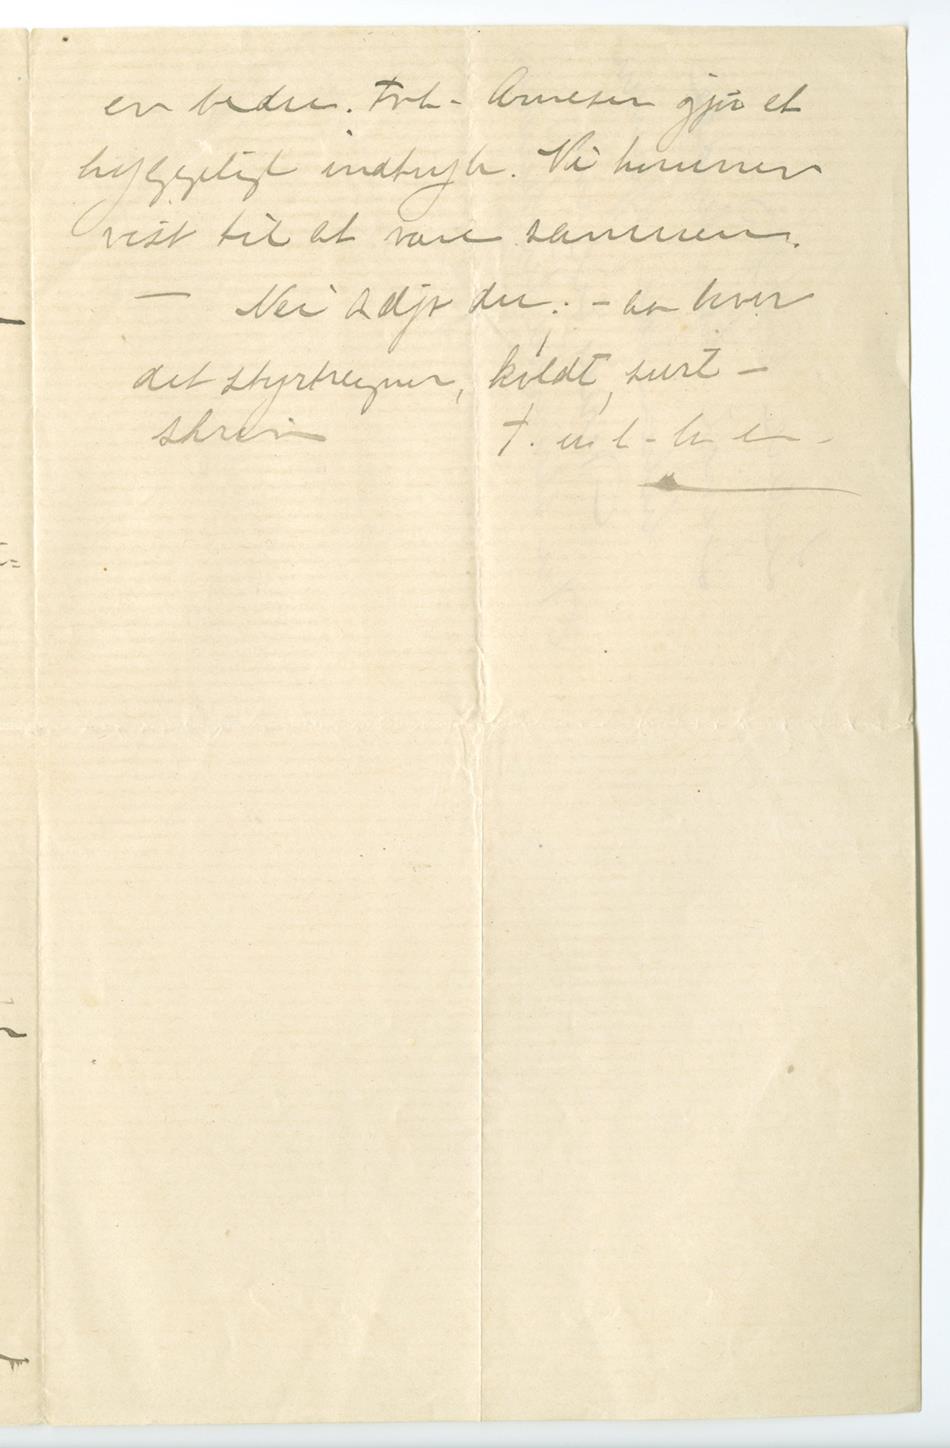 er bedre. Frk. Arnesen gjør et
hyggeligt indtryk. Vi kommer
vist til at være sammen.
— Nei Adjø du. – aa hvor
det styrtregner, koldt, surt –
skriv